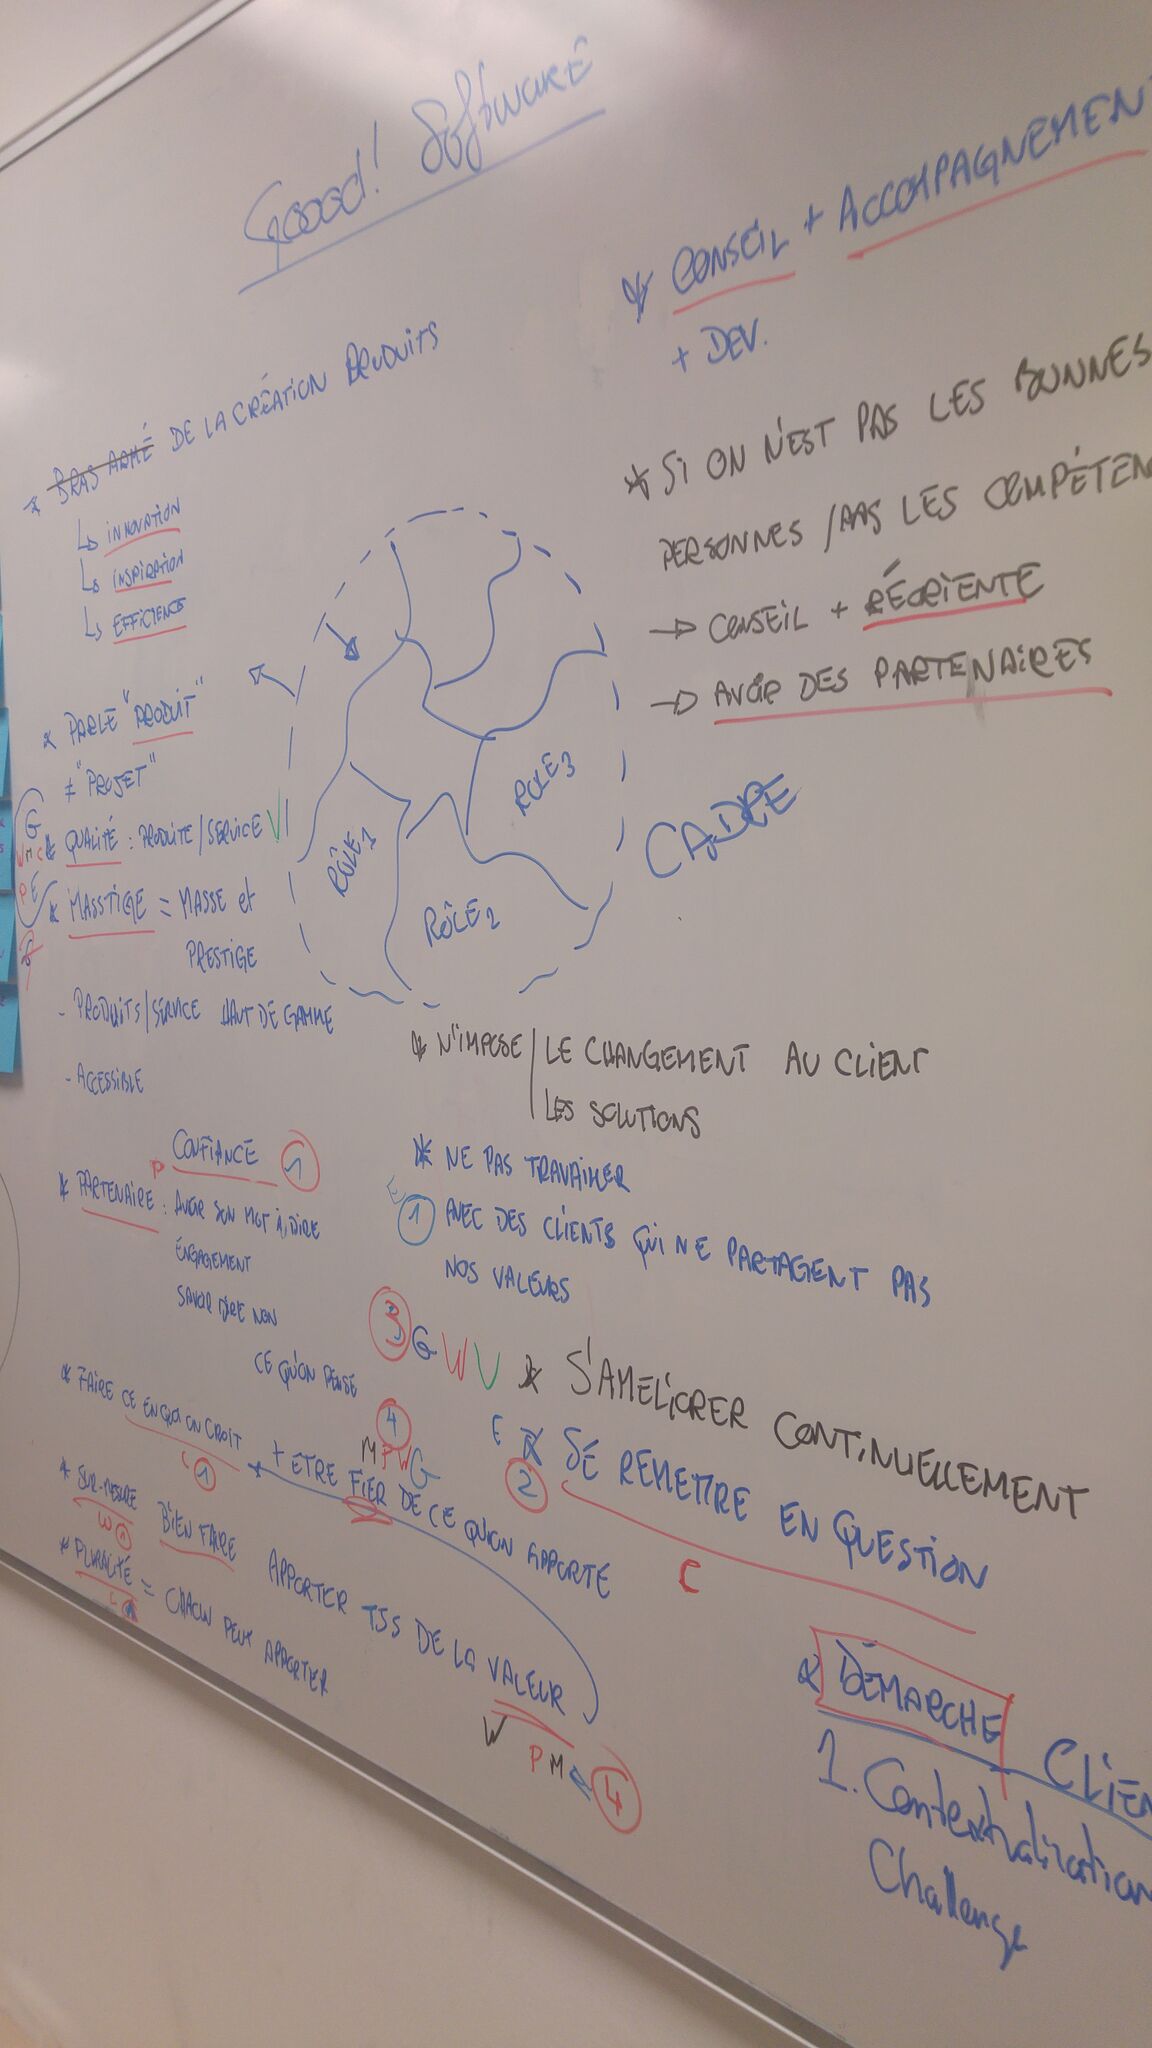 Goood! Software
* CONSEIL + ACCOMPAGNEMEN
+ DEV.
* BRAS ARMÉ DE LA CRÉATION PRODUITS
↳ INNOVATION
↳ INSPIRATION
↳ EFFICIENCE
* SI ON N'EST PAS LES BONNES
PERSONNES / PAS LES COMPÉTEN
→ CONSEIL + RÉORIENTE
→ AVOIR DES PARTENAIRES
* PARLE "PRODUIT"
≠ "PROJET"
G
W M C * QUALITÉ : PRODUITS/SERVICE V
P E * MASSTIGE = MASSE et
PRESTIGE
- PRODUITS/SERVICE HAUT DE GAMME
- ACCESSIBLE
RÔLE 1
RÔLE 2
RÔLE 3
CADRE
* N'IMPOSE / LE CHANGEMENT AU CLIENT
LES SOLUTIONS
P CONFIANCE 1
* PARTENAIRE : AVOIR SON MOT À DIRE
ENGAGEMENT
SAVOIR DIRE NON
CE QU'ON PENSE
* NE PAS TRAVAILLER
E 1 AVEC DES CLIENTS QUI NE PARTAGENT PAS
NOS VALEURS
3 G W V * S'AMELIORER CONTINUELLEMENT
E 2 * SE REMETTRE EN QUESTION
C
* FAIRE CE EN QUOI ON CROIT
1
4
M P W G
+ ETRE FIER DE CE QU'ON APPORTE
* SUR-MESURE
W 1
BIEN FAIRE APPORTER TJS DE LA VALEUR
W P M 4
* PLURALITÉ = CHACUN PEUT APPORTER
* DÉMARCHE CLIEN
1. Contextualisation
Challenge